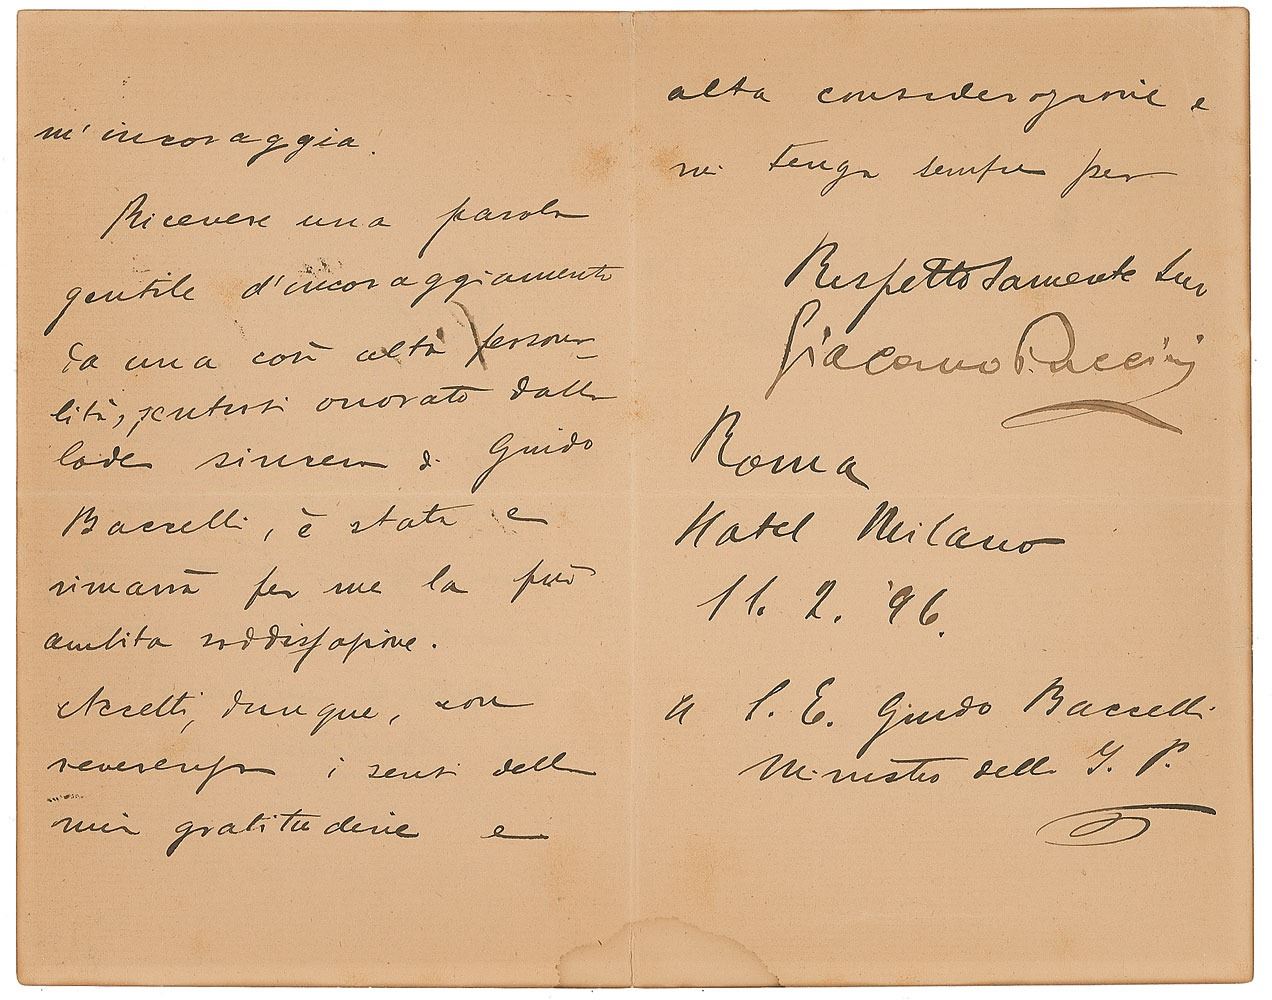 m'incoraggia.
Ricevere una parola
gentile d'incoraggiamento
da una così alta persona-
lità, sentirsi onorato dalla
lode sincera di Guido
Baccelli, è stata e
rimarrà per me la più
ambita soddisfazione.
Accetti, dunque, con
reverenza i sensi della
mia gratitudine e
alta considerazione e
mi tenga sempre per
Rispettosamente suo
Giacomo Puccini
Roma
Hotel Milano
11. 2. '96.
A S. E. Guido Baccelli
Ministro della I. P.